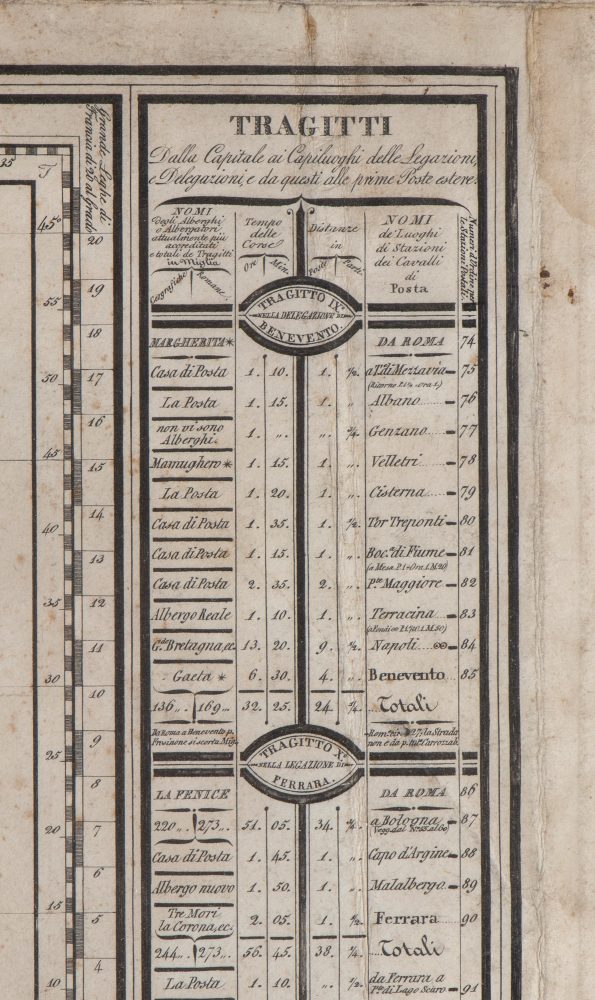 TRAGITTI
Dalla Capitale ai Capiluoghi delle Legazioni,
e Delegazioni, e da questi alle prime Poste estere.
NOMI
Degli Alberghi
o Albergatori
attualmente più
accreditati
e totali de Tragitti
in Miglia
Geografiche Romane
Tempo
delle
Corse
Ore Min.
Distanze
in
Poste Parti
NOMI
de' Luoghi
di Stazioni
dei Cavalli
di
Posta
Numeri d'Ordine per
le Stazioni Postali.
TRAGITTO IX.
NELLA DELEGAZIONE DI
BENEVENTO.
MARGHERITA * DA ROMA 74
Casa di Posta 1. 10. 1. ½. a T. di Mezzavia 75
(Ritorno P. 1 ¼ . ora 1.)
La Posta 1. 15. 1. „. Albano 76
non vi sono
Alberghi. 1. „. „. ¾. Genzano 77
Mamughero * 1. 15. 1. „. Velletri 78
La Posta 1. 20. 1. „. Cisterna 79
Casa di Posta 1. 35. 1. ½. Tor Treponti 80
Casa di Posta 1. 15. 1. „. Boc. di Fiume 81
(a Mesa P. 1 = Ora 1. M. 20)
Casa di Posta 2. 35. 2. „. P.te Maggiore 82
Albergo Reale 1. 10. 1. „. Terracina 83
G.de Bretagna, ec. 13. 20. 9. ½. Napoli ∞ 84
Gaeta * 6. 30. 4. „. Benevento 85
136 „. 169 „. 32. 25. 24. ¼. Totali
Da Roma a Benevento p.
Frosinone si scorta Mig.
Rom. cir. 27; la Strada
non è da p. tut. Carrozzab.
TRAGITTO X.
NELLA LEGAZIONE DI
FERRARA.
LA FENICE DA ROMA 86
220 „. 273 „. 51. 05. 34. ¾. a Bologna 87
Casa di Posta 1. 45. 1. „. Capo d'Argine 88
Albergo nuovo 1. 50. 1. „. Malalbergo 89
Tre Mori
la Corona, ec. 2. 05. 1. ½. Ferrara 90
244 „. 273 „. 56. 45. 38. ¼. Totali
La Posta 1. 10. „. ½. da Ferrara a
P.te di Lago Scuro 91
Grande Leghe di
Francia di 20 al Grado
T
35
45°
55
50
45
40
35
30
25
20
15
10
20
19
18
17
16
15
14
13
12
11
10
9
8
7
6
5
4